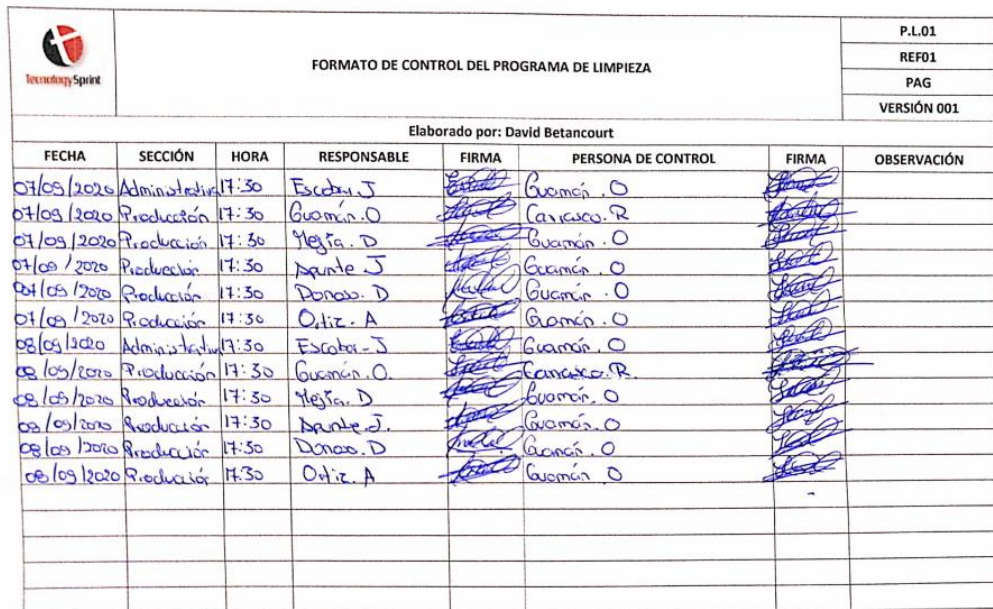 TecnologySprint
FORMATO DE CONTROL DEL PROGRAMA DE LIMPIEZA
P.L.01
REF01
PAG
VERSIÓN 001
Elaborado por: David Betancourt
FECHA SECCIÓN HORA RESPONSABLE FIRMA PERSONA DE CONTROL FIRMA OBSERVACIÓN
07/09/2020 Administrativa 17:30 Escobar. J Guamán. O
07/09/2020 Producción 17:30 Guamán. O Carrasco. R
07/09/2020 Producción 17:30 Mejía. D Guamán. O
07/09/2020 Producción 17:30 Apunte J Guamán. O
07/09/2020 Producción 17:30 Donoso. D Guamán. O
07/09/2020 Producción 17:30 Ortiz. A Guamán. O
08/09/2020 Administrativa 17:30 Escobar. J Guamán. O
08/09/2020 Producción 17:30 Guamán. O. Carrasco. R.
08/09/2020 Producción 17:30 Mejía. D Guamán. O
08/09/2020 Producción 17:30 Apunte. J. Guamán. O
08/09/2020 Producción 17:30 Donoso. D Guamán. O
08/09/2020 Producción 17:30 Ortiz. A Guamán O